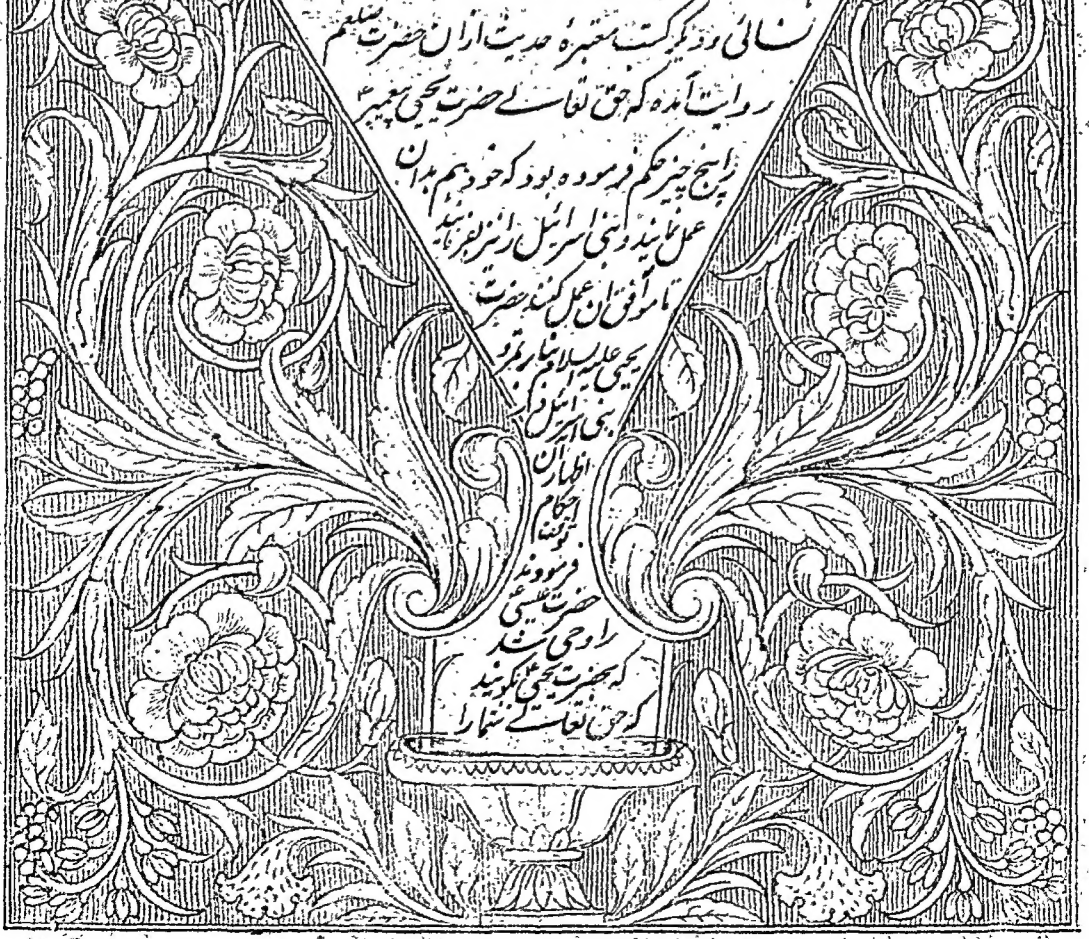 نسائی و دیگر کتب معتبرهٔ حدیث از ان حضرت صلعم
روایت آمده که حق تعالے حضرت یحیی پیغمبر ؑ
را پنج چیز حکم فرموده بود که خود هم بدان
عمل نمایند و بنی اسرائیل را نیز بفرمایند
تا موافق ان عمل کنند حضرت
یحیی علیه السلام بنا بر تمرد
بنی اسرائیل در
اظهار ان
احکام
توقف
فرمودند
حضرت عیسی ؑ
را وحی شد
که بحضرت یحیی ؑ بگوئید
که حق تعالے شما را